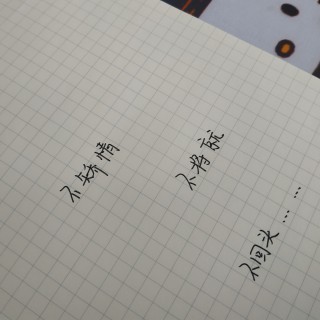 不矫情
不将就
不回头……